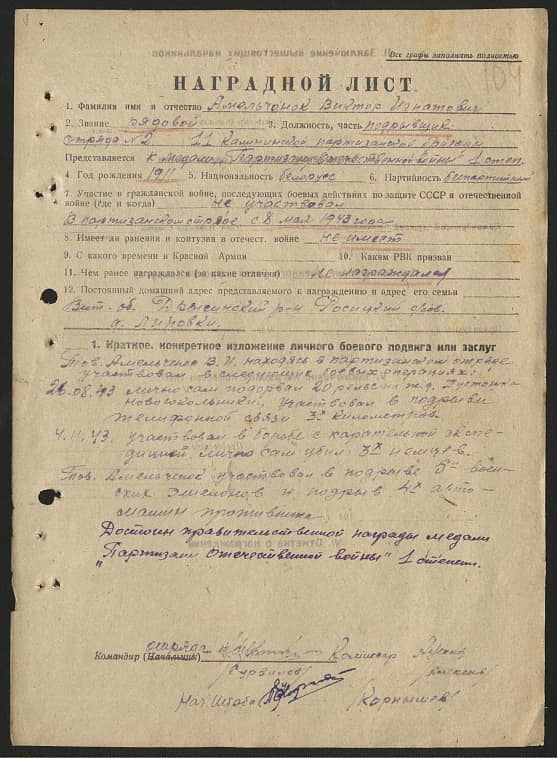 Все графы заполнять полностью
164
НАГРАДНОЙ ЛИСТ
1. Фамилия имя и отчество Амельчонок Виктор Игнатович
2. Звание рядовой 3. Должность, часть подрывщик
отряда №2. 11 Калининской партизанской бригады
Представляется к медали "Партизан Отечественной войны" 1 степ.
4. Год рождения 1911 5. Национальность белорус 6. Партийность беспартийный
7. Участие в гражданской войне, последующих боевых действиях по защите СССР и отечественной
войне (где и когда) не участвовал
В партизанском отряде с 8 мая 1943 года
8. Имеет ли ранения и контузии в отечест. войне не имеет
9. С какого времени в Красной Армии 10. Каким РВК призван
11. Чем ранее награждался (за какие отличия) не награждался
12. Постоянный домашний адрес представляемого к награждению и адрес его семьи
Вит. об. Дрысинский р-н Росицкий с/сов.
д. Липовки.
1. Краткое, конкретное изложение личного боевого подвига или заслуг
Тов. Амельченок В.И. находясь в партизанском отряде
участвовал в следующих боевых операциях:
26.08.43 лично сам подорвал 20 рельс на ж.д. Пустошка
Новосокольники, участвовал в подрыве
телифонной связи 3х километров.
4.11.43. участвовал в борьбе с карательной экспе-
дицией. Лично сам убил 3х немцев.
Тов. Амельченок участвовал в подрыве 5ти воен-
ских эшелонов и подрыв 4х авто-
машин противника
Достоин правительственной награды медали
"Партизан Отечественной войны" 1 степени.
Командир (Начальник) отряда Комиссар
Нач. Штаба (Корнышев)